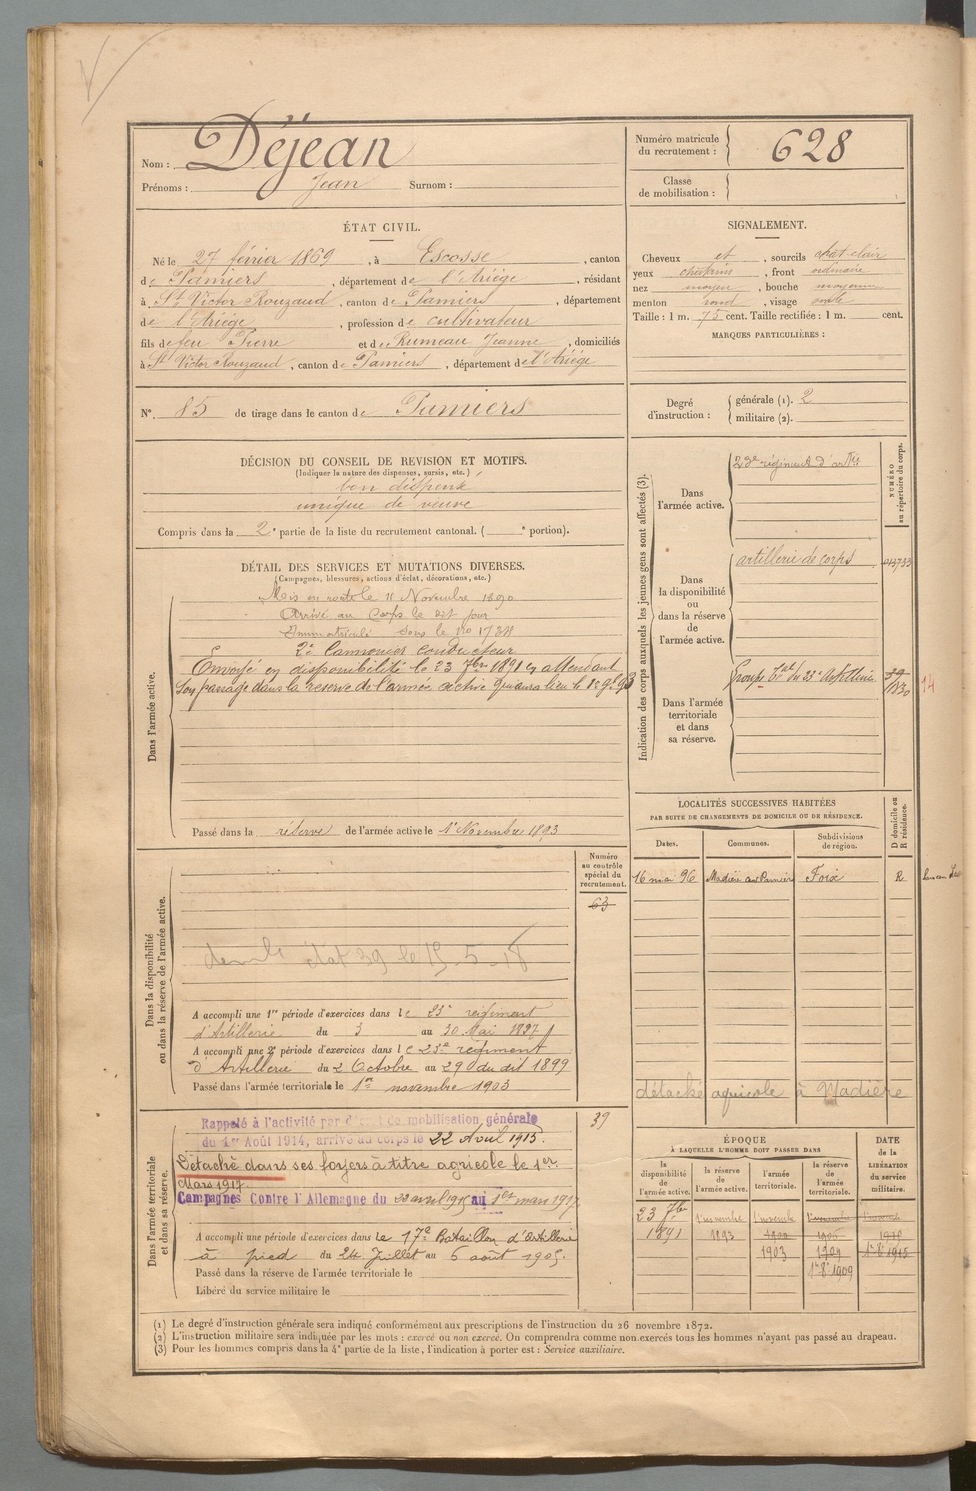 Nom : Déjean
Prénoms : Jean Surnom :
Numéro matricule du recrutement : 628
Classe de mobilisation :
ÉTAT CIVIL.
Né le 27 février 1869, à Escosse, canton
de Pamiers, département de l'Ariége, résidant
à St Victor Rouzaud, canton de Pamiers, département
de l'Ariége, profession de cultivateur
fils de feu Pierre et de Rumeau Jeanne, domiciliés
à St Victor Rouzaud, canton de Pamiers, département de l'Ariége
N° 85 de tirage dans le canton de Pamiers
SIGNALEMENT.
Cheveux et, sourcils chat clair
yeux chatains, front ordinaire
nez moyen, bouche moyenne
menton rond, visage ovale
Taille : 1 m. 75 cent. Taille rectifiée : 1 m. cent.
MARQUES PARTICULIÈRES :
Degré d'instruction : générale (1). 2
militaire (2).
DÉCISION DU CONSEIL DE REVISION ET MOTIFS.
(Indiquer la nature des dispenses, sursis, etc.)
bon dispensé
unique de veuve
Compris dans la 2e partie de la liste du recrutement cantonal. ( e portion).
DÉTAIL DES SERVICES ET MUTATIONS DIVERSES.
(Campagnes, blessures, actions d'éclat, décorations, etc.)
Dans l'armée active.
Mis en route le 11 Novembre 1890
Arrivé au Corps le dit jour
Immatriculé sous le No 1734
2e Canonnier conducteur
Envoyé en disponibilité le 23 7bre 1891 en attendant
son passage dans la réserve de l'armée active qui aura lieu le 1er 9bre 93
Passé dans la réserve de l'armée active le 1r Novembre 1893
Indication des corps auxquels les jeunes gens sont affectés (3).
NUMÉRO au répertoire du corps.
Dans l'armée active.
23e régiment d'artie
Dans la disponibilité ou dans la réserve de l'armée active.
artillerie de corps
Dans l'armée territoriale et dans sa réserve.
Groupe du 23e Artillerie
39
14
LOCALITÉS SUCCESSIVES HABITÉES
PAR SUITE DE CHANGEMENTS DE DOMICILE OU DE RÉSIDENCE.
D domicile ou R résidence.
Dates. Communes. Subdivisions de région.
16 mai 96 Madière con Pamiers Foix R
détaché agricole à Madière
Dans la disponibilité ou dans la réserve de l'armée active.
Numéro au contrôle spécial du recrutement.
63
état 39 le 15-5-18
A accompli une 1re période d'exercices dans le 23e régiment
d'Artillerie du 3 au 30 Mai 1897
A accompli une 2e période d'exercices dans le 23e régiment
d'Artillerie du 2 Octobre au 29 du dit 1899
Passé dans l'armée territoriale le 1er novembre 1903
Dans l'armée territoriale et dans sa réserve.
39
Rappelé à l'activité par décret de mobilisation générale
du 1er Août 1914, arrivé au corps le 22 Avril 1915.
Détaché dans ses foyers à titre agricole le 1er
Mars 1917.
Campagnes Contre l'Allemagne du 22 avril 1915 au 1er mars 1917.
A accompli une période d'exercices dans le 17e Bataillon d'Artillerie
à pied du 24 Juillet au 6 août 1905.
Passé dans la réserve de l'armée territoriale le
Libéré du service militaire le
ÉPOQUE
À LAQUELLE L'HOMME DOIT PASSER DANS
DATE de la LIBÉRATION DU SERVICE militaire.
la disponibilité de l'armée active. la réserve de l'armée active. l'armée territoriale. la réserve de l'armée territoriale.
23 7bre 1891
1er novembre 1893
1903
1909
1er 8bre 1909
(1) Le degré d'instruction générale sera indiqué conformément aux prescriptions de l'instruction du 26 novembre 1872.
(2) L'instruction militaire sera indiquée par les mots : exercé ou non exercé. On comprendra comme non exercés tous les hommes n'ayant pas passé au drapeau.
(3) Pour les hommes compris dans la 4e partie de la liste, l'indication à porter est : Service auxiliaire.